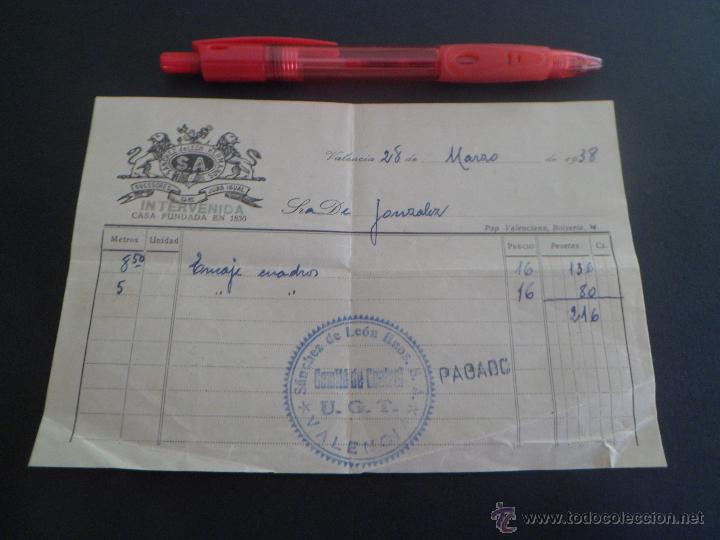 SÁNCHEZ de LEÓN HERMANOS
S.A
SUCESORES DE JUAN IGUAL
INTERVENIDA
CASA FUNDADA EN 1830
Valencia 28 de Marzo de 1938
Sra De Gonzalez
Pap. Valenciana,
Metros Unidad Precio Pesetas Cs.
8,50 Encaje cuadros 16 136
5 " " 16 80
216
Sánchez de León Hnos. S. A.
Comité de Control
U. G. T.
VALENCI
PAGADO
www.todocoleccion.net